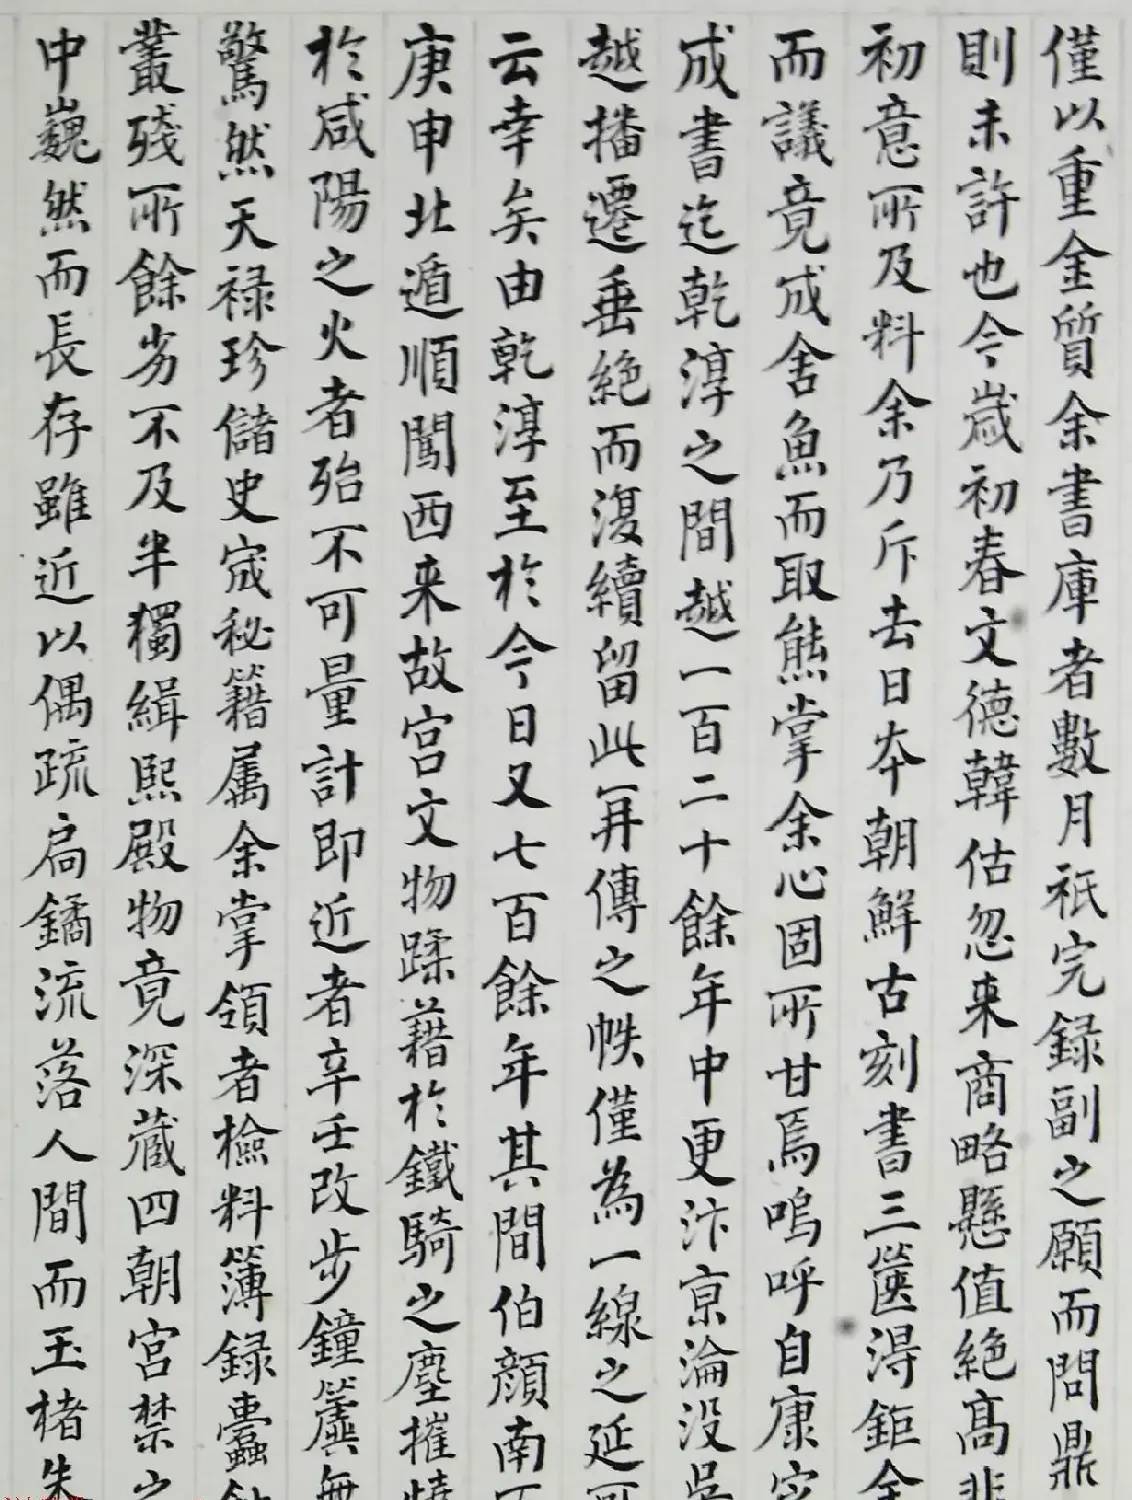 僅以重金質余書庫者數月祇完録副之願而問鼎
則未許也今歲初春文德韓估忽来商略懸值絶高非
初意所及料余乃斥去日本朝鮮古刻書三篋得鉅金
而議竟成舍魚而取熊掌余心固所甘焉嗚呼自康定
成書迄乾淳之間越一百二十餘年中更汴京淪没吳
越播遷垂絶而復續留此一再傳之帙僅為一線之延可
云幸矣由乾淳至於今日又七百餘年其間伯顔南下
庚申北遁順闖西来故宫文物蹂藉於鐵騎之塵摧燒
於咸陽之火者殆不可量計即近者辛壬改步鐘簴無
驚然天禄珍儲史宬秘籍属余掌領者檢料簿録蠹蝕
叢殘所餘劣不及半獨緝熙殿物竟深藏四朝宫禁之
中巍然而長存雖近以偶疏扃鐍流落人間而玉楮朱